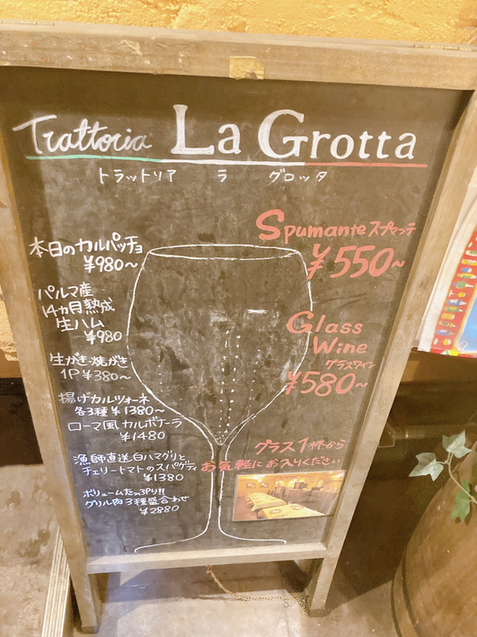 Trattoria La Grotta
トラットリア ラ グロッタ
本日のカルパッチョ
¥980~
パルマ産
14ヵ月熟成
生ハム
¥980
生がき・焼がき
1P ¥380~
揚げカルツォーネ
各3種 ¥1380~
ローマ風カルボナーラ
¥1480
漁師直送 白ハマグリと
チェリートマトのスパゲティ
¥1380
ボリュームたっぷり!!
グリル肉3種盛合わせ
¥2880
Spumante スプマンテ
¥550~
Glass
Wine
グラスワイン
¥580~
グラス1杯から
お気軽にお入りください